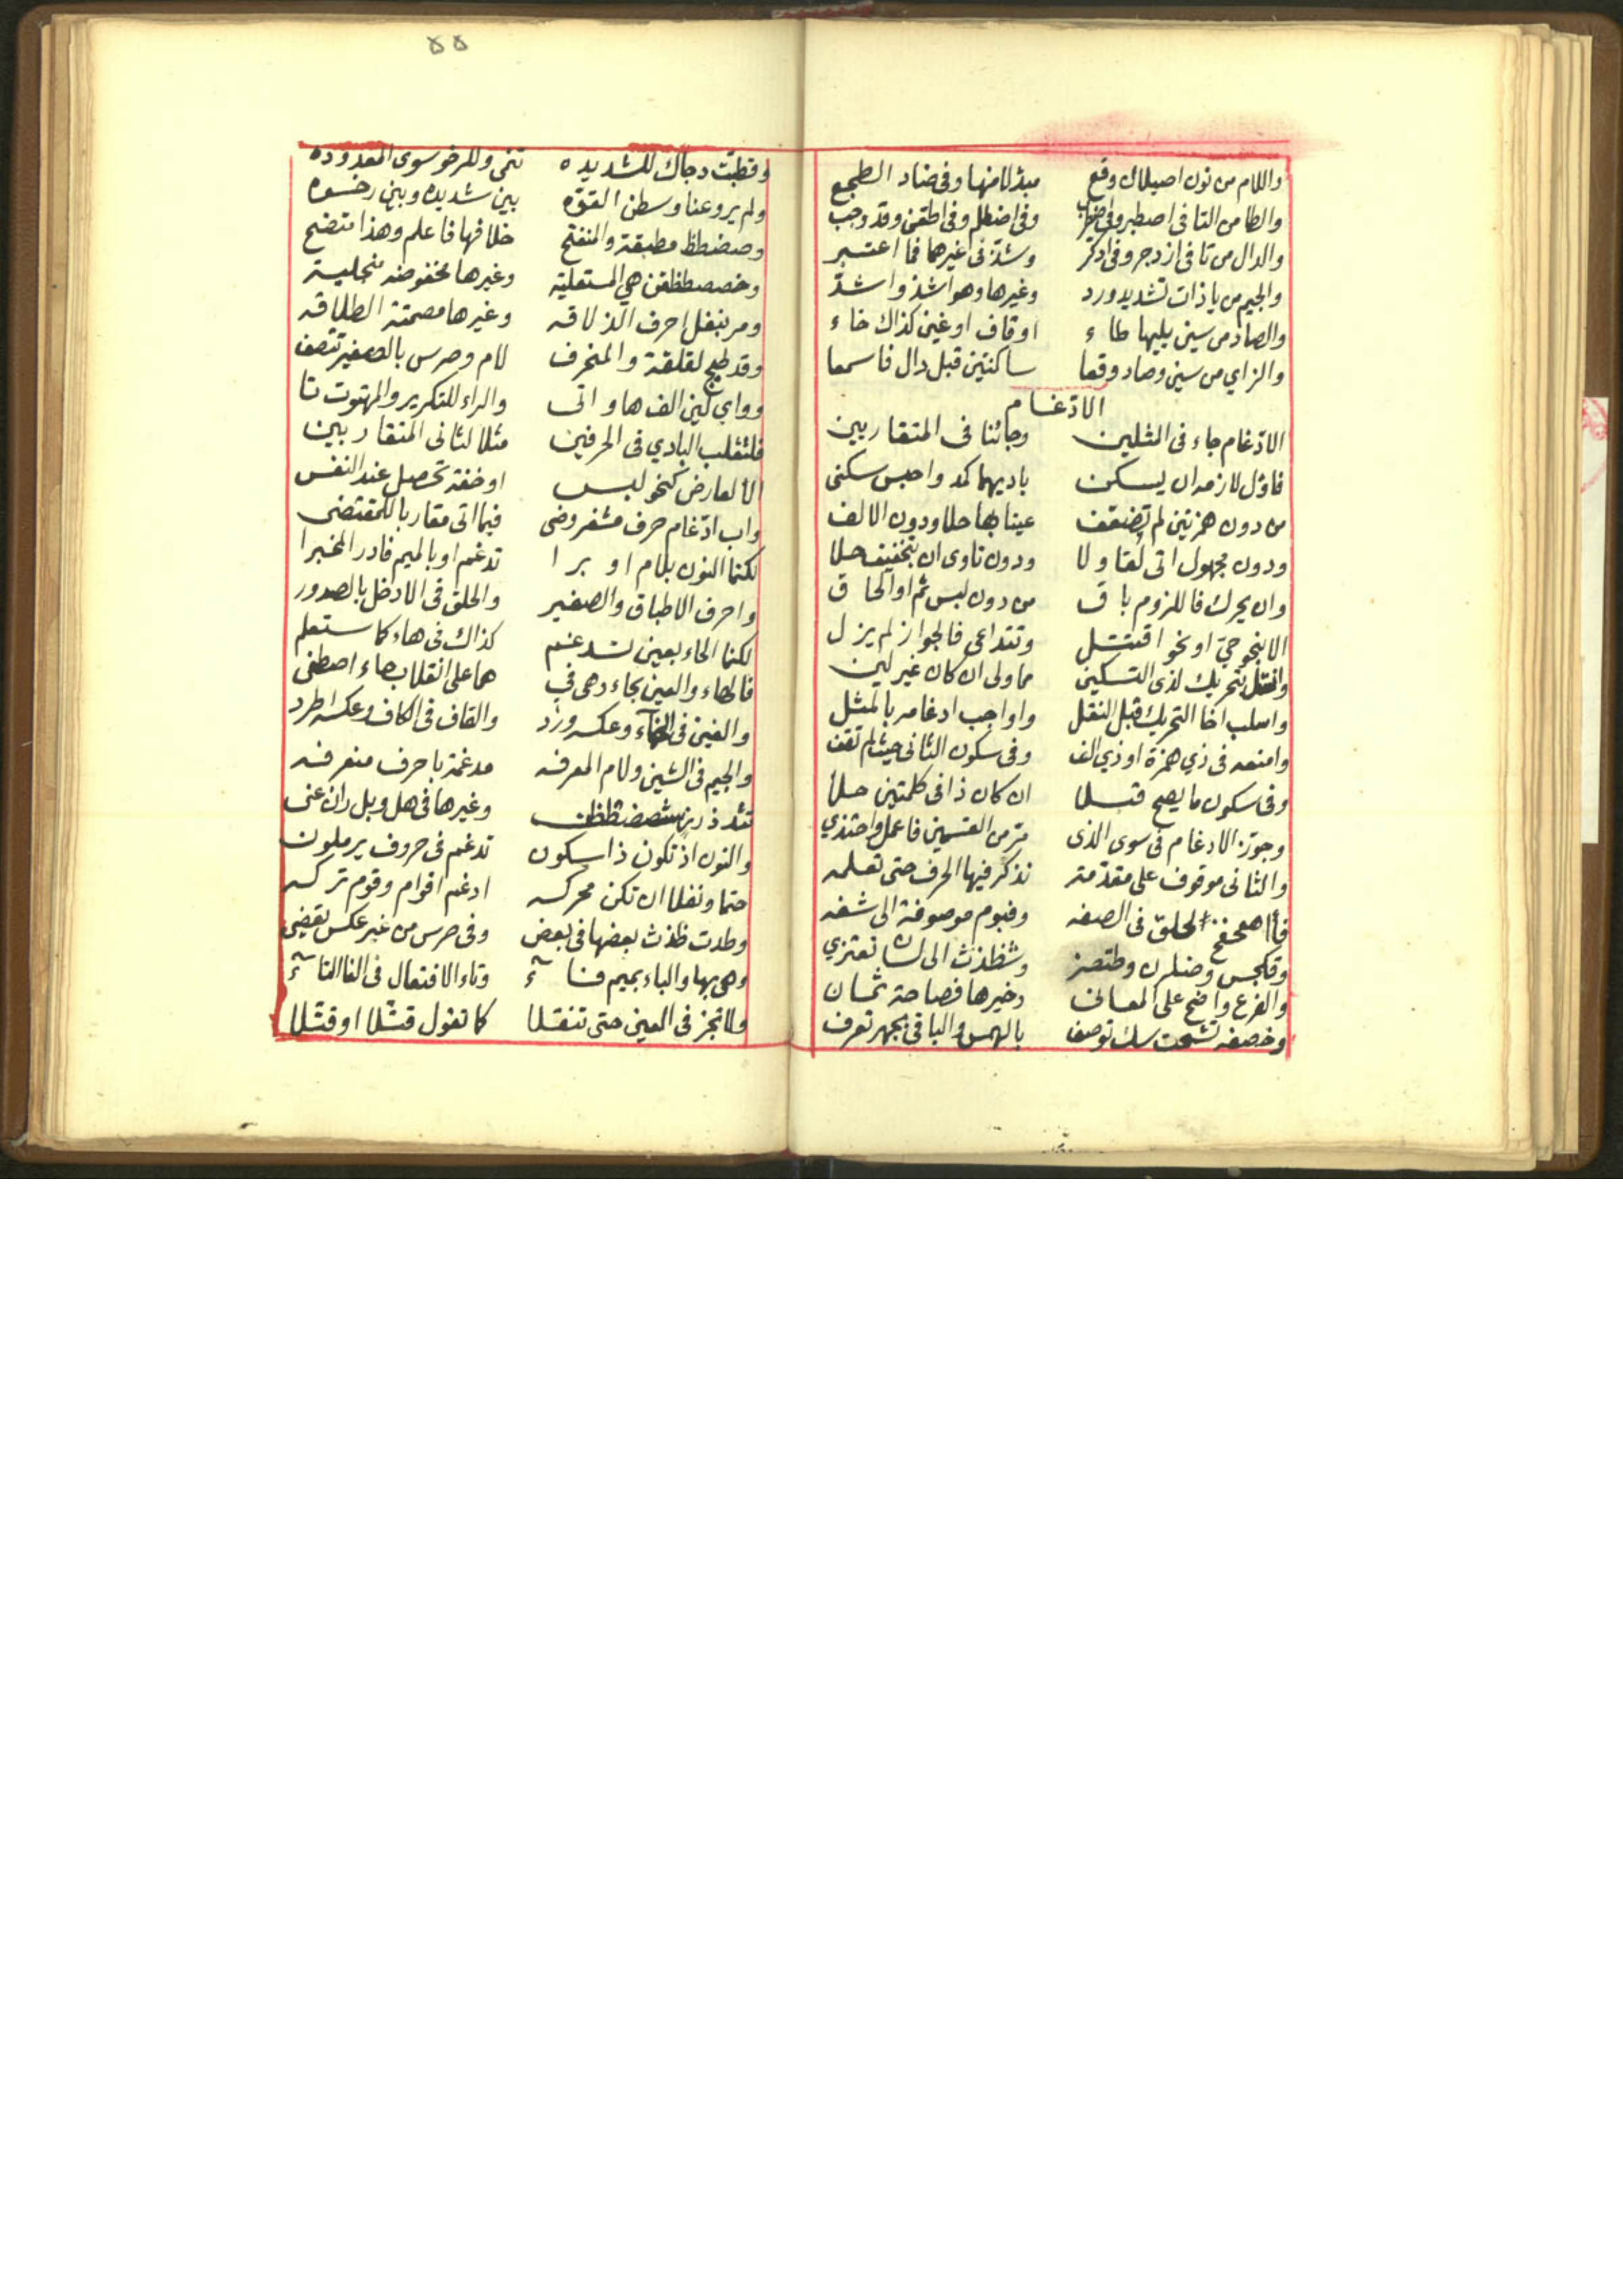 واللام من نون اصيلال وقع مبدلا منها وفي ضاد الطجع
والطا من التا في اصطبر وفي اضطرب وفي اضطلم وفي اطعن وقد وجب
والدال من تا في ازدجر وفي ادكر وشذ في غيرهما فما اعتبر
والجيم من يا ذات تشديد ورد وغيرها وهو اشذ واشذ
والصاد من سين يليها طاء او قاف او غين كذاك خاء
والزاي من سين وصاد وقعا ساكنتين قبل دال فاسمعا
الادغام
الادغام جاء في المثلين وجائنا في المتقاربين
فاول لازمه ان يسكن باديهما كمد واحبس سكني
من دون همزتين لم عينا بها حلا ودون الالف
ودون مجهول اتى لقاولا ودون تاوى ان بتخفيف حلا
وان يحرك فاللزوم باق من دون لبس ثم او الحاق
الا بنحو حيّ او نحو اقتتل وتتداعى فالجواز لم يزل
وانقل بتحريك لذي التسكين مما ولى ان كان غير لين
واسلب اخا التحريك قبل النقل واواجب ادغامه بالمثل
وامنعه في ذي همزة او ذي الف وفي سكون الثاني حيث لم تقف
وفي سكون ما يصح قبلا ان كان ذا في كلمتين حلا
وجوز الادغام في سوى الذي مر من القسمين فاعمل واحتذي
والثاني موقوف على مقدمته نذكر فيها الحرف حتى تعلمه
الحلق في الصفه وفبوم موصوفة الى شفه
الى لسان تعتزي
والفرع واضح على المعاني وخيرها فصاحة ثمان
توصف بالهمس والباقي بجهر تعرف
وقطبت دجاك للشديده تنمى وللرخو سوى المعدوده
ولم يروعنا وسطن القوه بين شديده وبين رخوه
وصضطظ مطبقة والمنفتح خلافها فاعلم وهذا متضح
هي المستعليه وغيرها مخفوضه منجليه
ومر بنفل احرف الذلاقه وغيرها مصمتة الطلاقه
وقد طبج لقلقة والمنحرف لام وصرس بالصفير تتصف
وواي لين الف هاو اتى والراء للتكرير والمهتوت تا
فلتقلب البادي في الحرفين مثلا لثاني المتقاربين
الا لعارض كنحو لبس او خفة تحصل عند النفس
واب ادغام حرف مشفر وضي فيما اتى مقاربا للمقتضي
لكنما النون بلام او برا تدغم او بالميم فادر الخبرا
واحرف الاطباق والصفير والحلق في الادخل بالصدور
لكنما الحاء بعين تدغم كذاك في هاء كما ستعلم
فالهاء والعين بحاء وهي في هما على انقلاب حاء اصطفي
والغين في الخاء وعكسه ورد والقاف في الكاف وعكسه اطرد
والجيم في الشين ولام المعرفه مدغمة باحرف منعرفه
وغيرها في هل وبل ران عني
والنون اذ تكون ذا سكون تدغم في حروف يرملون
حتما ونفلا ان تكن محركه ادغم اقوام وقوم تركه
وطدت ظذث بعضها في بعض وفي صرس من غير عكس تقضي
وهي بها والباء بميم فاء وتاء الافتعال في الفا التاء
كما تقول قتلا او قتلا